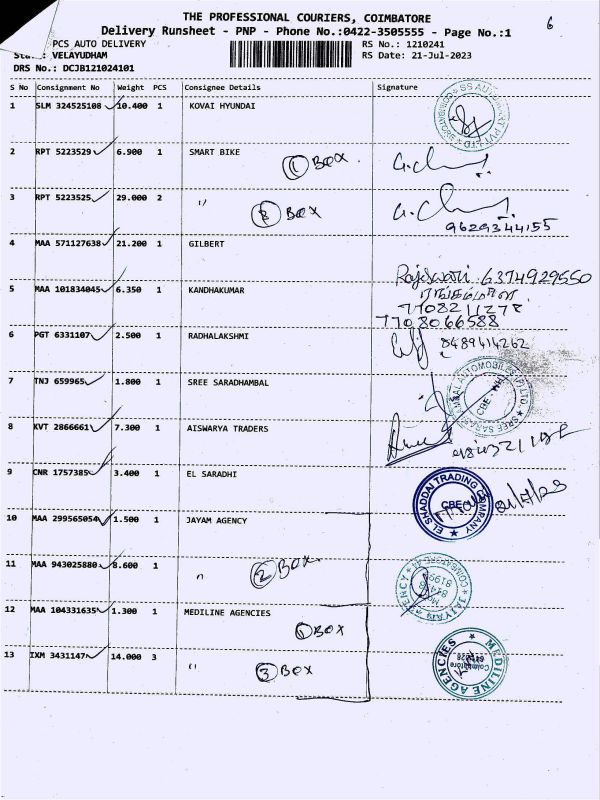 6
THE PROFESSIONAL COURIERS, COIMBATORE
Delivery Runsheet - PNP - Phone No.:0422-3505555 - Page No.:1
PCS AUTO DELIVERY
RS No.: 1210241
VELAYUDHAM
RS Date: 21-Jul-2023
DRS No.: DCJB121024101
S No Consignment No Weight PCS Consignee Details Signature
1 SLM 324525108 10.400 1 KOVAI HYUNDAI
2 RPT 5223529 6.900 1 SMART BIKE
1 BOX
3 RPT 5223525 29.000 2 "
3 BOX
9629344155
4 MAA 571127638 21.200 1 GILBERT
Rajeswari 6374929550
5 MAA 101834045 6.350 1 KANDHAKUMAR
7708211278
7708066588
6 PGT 6331107 2.500 1 RADHALAKSHMI
8489414262
7 TNJ 659965 1.800 1 SREE SARADHAMBAL
SREE SARADHAMBAL AUTOMOBILES (P) LTD.
CBE
8 KVT 2866661 7.300 1 AISWARYA TRADERS
9 CNR 1757385 3.400 1 EL SARADHI
EL SHADDAI TRADING COMPANY
CBE
10 MAA 299565054 1.500 1 JAYAM AGENCY
11 MAA 943025880 8.600 1 "
2 BOX
12 MAA 104331635 1.300 1 MEDILINE AGENCIES
1 BOX
13 IXM 3431147 14.000 3 "
3 BOX
MEDILINE AGENCIES
Coimbatore